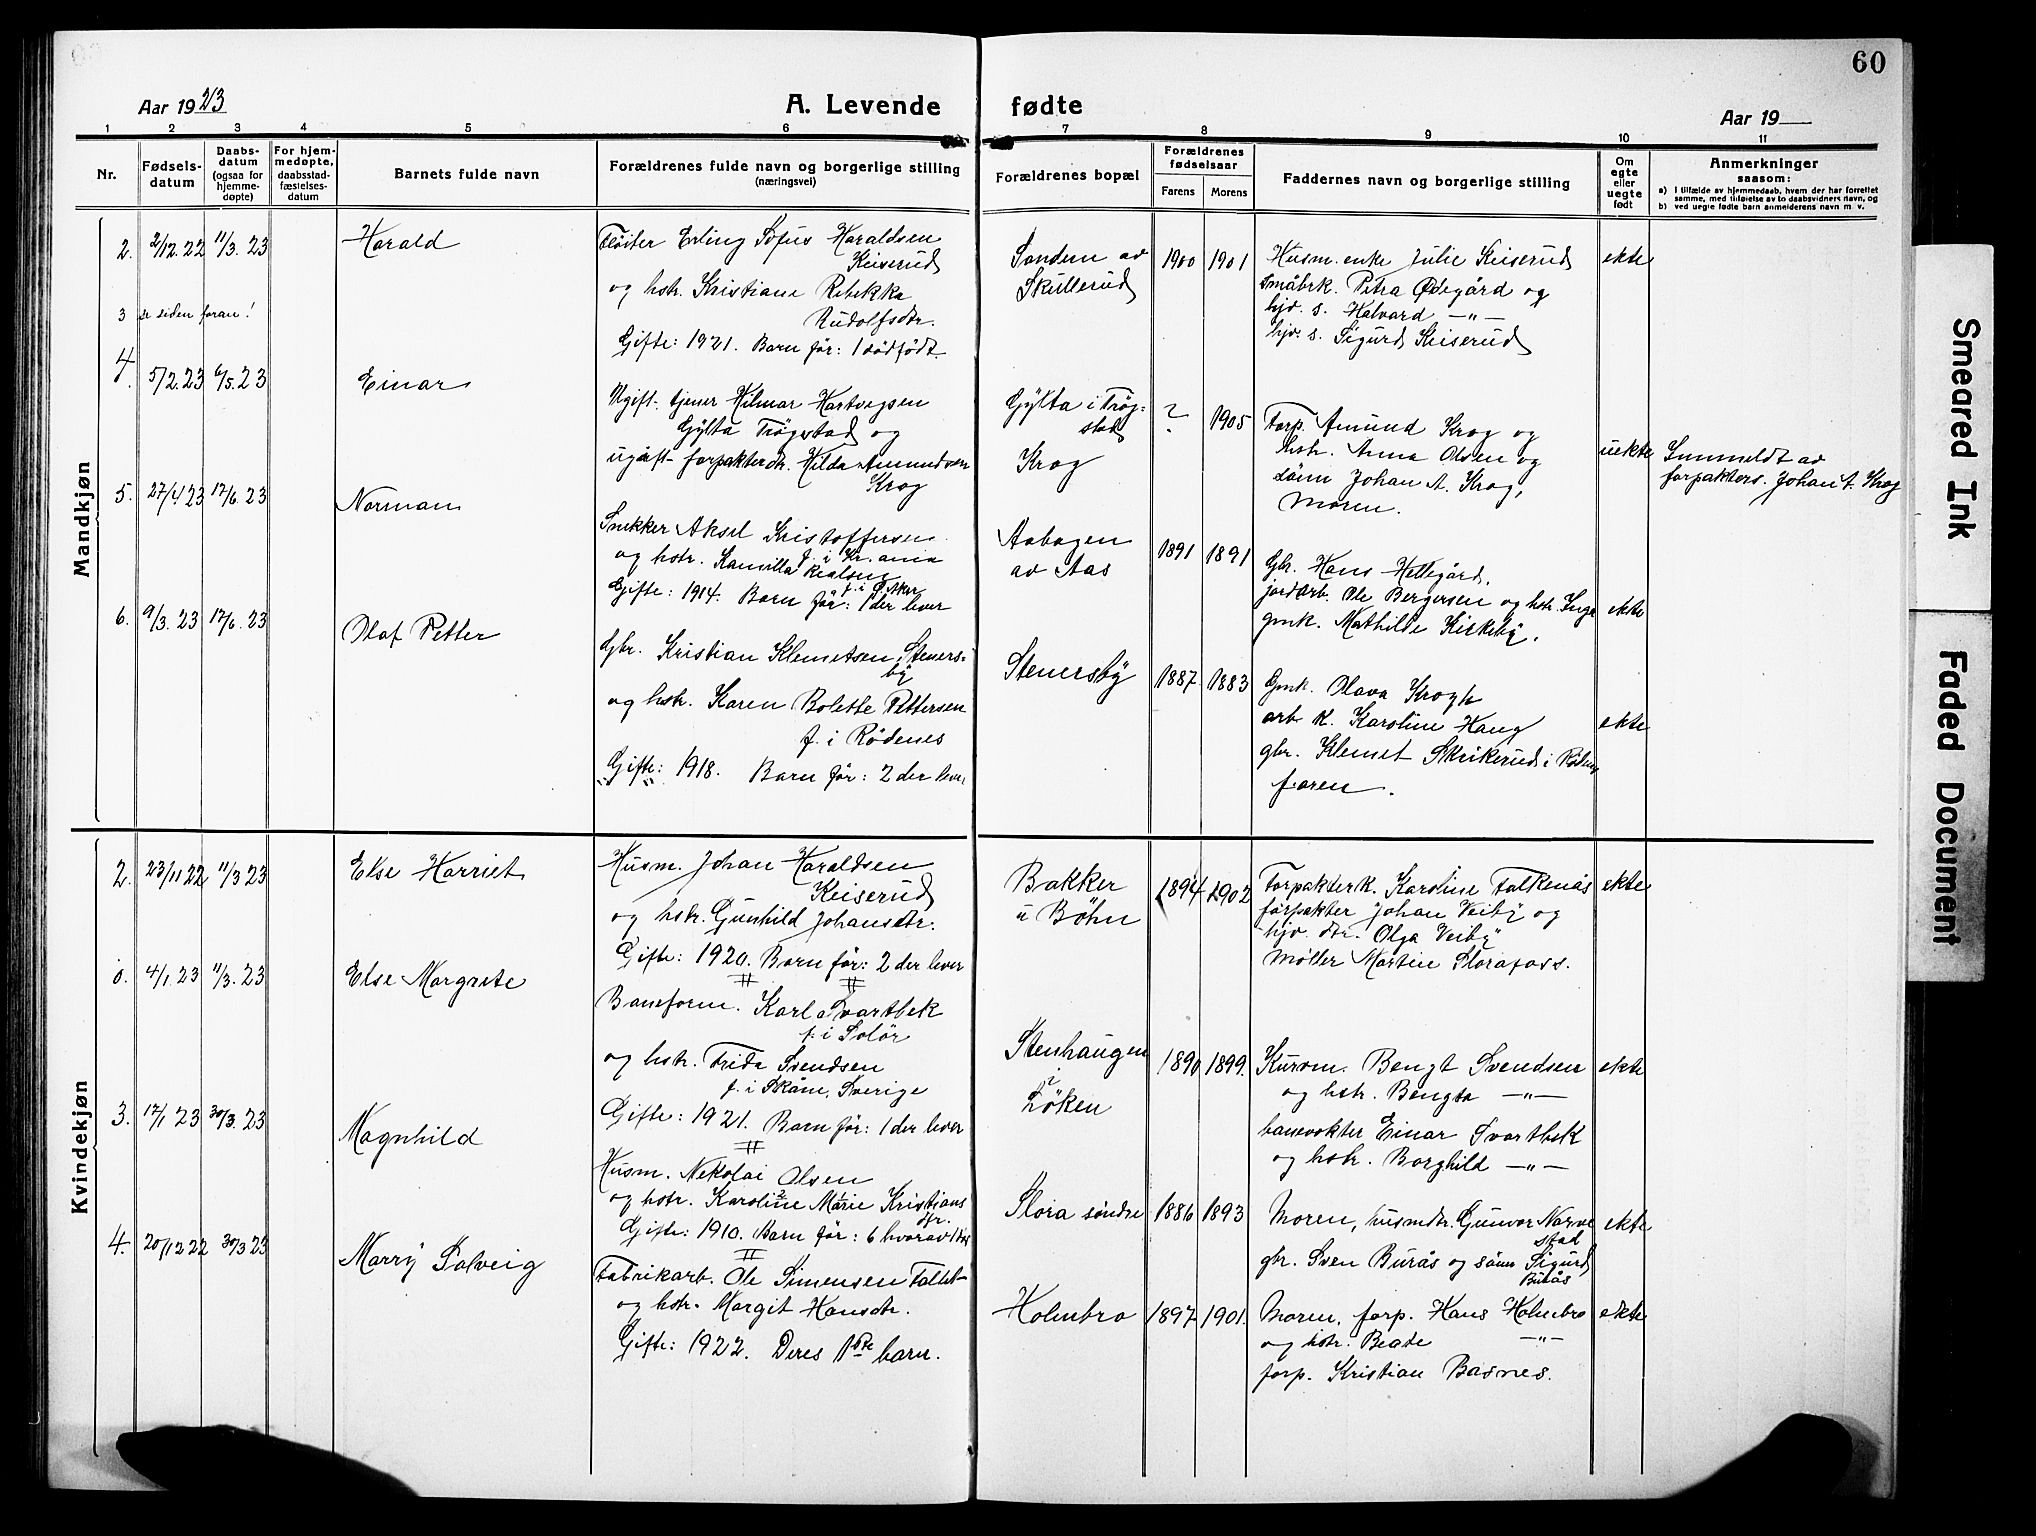 60
Aar 1923
A. Levende fødte
Aar 19
1 2 3 4 5 6 7 8 9 10 11
Nr.
Fødsels-
datum
Daabs-
datum
(ogsaa for
hjemme-
døpte)
For hjem-
medøpte,
daabsstad-
fæstelses-
datum
Barnets fulde navn
Forældrenes fulde navn og borgerlige stilling
(næringsvei)
Forældrenes bopæl
Forældrenes
fødselsaar
Farens Morens
Faddernes navn og borgerlige stilling
Om
egte
eller
uegte
født
Anmerkninger
saasom:
a) i tilfælde av hjemmedaab, hvem der har forrettet
samme, med tilføielse av to daabsvidners navn, og
b) ved uegte fødte barn anmelderens navn m. v.
Mandkjøn
2. 2/12.22 11/3.23 Harald
Fløiter Erling Sofus Haraldsen
Keiserud
og hstr. Kristiane Rebekka
Rudolfsdtr.
Gifte: 1921. Barn før: 1 dødfødt.
Sanden av
Skullerud
1900 1901
Husm. enke Julie Keiserud
småbrk. Petra Ødegård og
hjv. s. Halvard —„—
hjv. s. Sigurd Keiserud
ekte
3 se siden foran!
4. 5/2.23 6/5.23 Einar
Ugift. tjener Hilmar Hartvigsen
Gylta Trøgstad og
ugift forpakterdtr. Hilda Amundsen
Krog
Gylta i Trøg-
stad
Krog
? 1905
Forp. Amund Krog og
hstr. Anna Olsen og
sønn Johan A. Krog,
Moren.
uekte
Innmeldt av
forpakters. Johan A. Krog
5. 27/4 23 17/6 23 Norman
Snekker Aksel Kristoffersen
f. i Kr.ania
og hstr. Kamilla
Gifte: 1914. Barn før: 1 der lever
Aabogen
av Aas
1891 1891
Gbr. Hans Hellegård,
jordarb. Ole Bergersen og hstr. Inga
gmk. Mathilde Kirkeby.
ekte
6. 9/3.23 17/6.23 Olaf Petter
Gbr. Kristian Klemetsen Steners-
by
og hstr. Karen Bolette Pettersen
f. i Rødenes
Gifte: 1918. Barn før: 2 der lever
Stenersby
1887 1883
Gmk. Olava Krogh
arb. k. Karoline Haug
gbr. Klemet Skrikerud i Rødenes
faren.
ekte
Kvindekjøn
2. 23/11 22 11/3 23 Else Harriet
Husm. Johan Haraldsen
Keiserud
og hstr. Gunhild Johansdtr.
Gifte: 1920. Barn før: 2 der lever
Bakker
u Bøhn
1894 1902
Forpakterk. Karoline Falkenås
forpakter Johan Veiby og
hjv. dtr. Olga Veiby
Møller Martin Slorafoss.
ekte
4/1.23 11/3.23 Else Margrete
Baneform. Karl Svartbek
f. i Solør
og hstr. Frida Svendsen
f. i Skåne, Sverige
Gifte: 1921. Barn før: 1 der lever
Stenhaugen
i
Løken
1890 1899.
Kusm. Bengt Svendsen
og hstr. Bengta —„—
banevokter Einar Svartbek
og hstr. Borghild —„—
ekte
3. 17/1 23 30/3.23 Magnhild
Husm. Nekolai Olsen
og hstr. Karoline Marie Kristians
dtr.
Gifte: 1910. Barn før: 6 hvorav 1 død
Slora søndre
1886 1893
Moren, husmdtr. Gunvor Narve
stad
gbr. Sven Burås og sønn Sigurd
Burås
ekte
4. 20/12 22 30/3 23 Marry Solveig
Fabrikarb. Ole Simensen Fallet
og hstr. Margit Hansdtr.
Gifte: 1922. Deres 1ste barn.
Holmbro
1897 1901.
Moren, forp. Hans Holmbro
og hstr. Beate —„—
forp. Kristian Basnes.
ekte
Smeared Ink
Faded Document